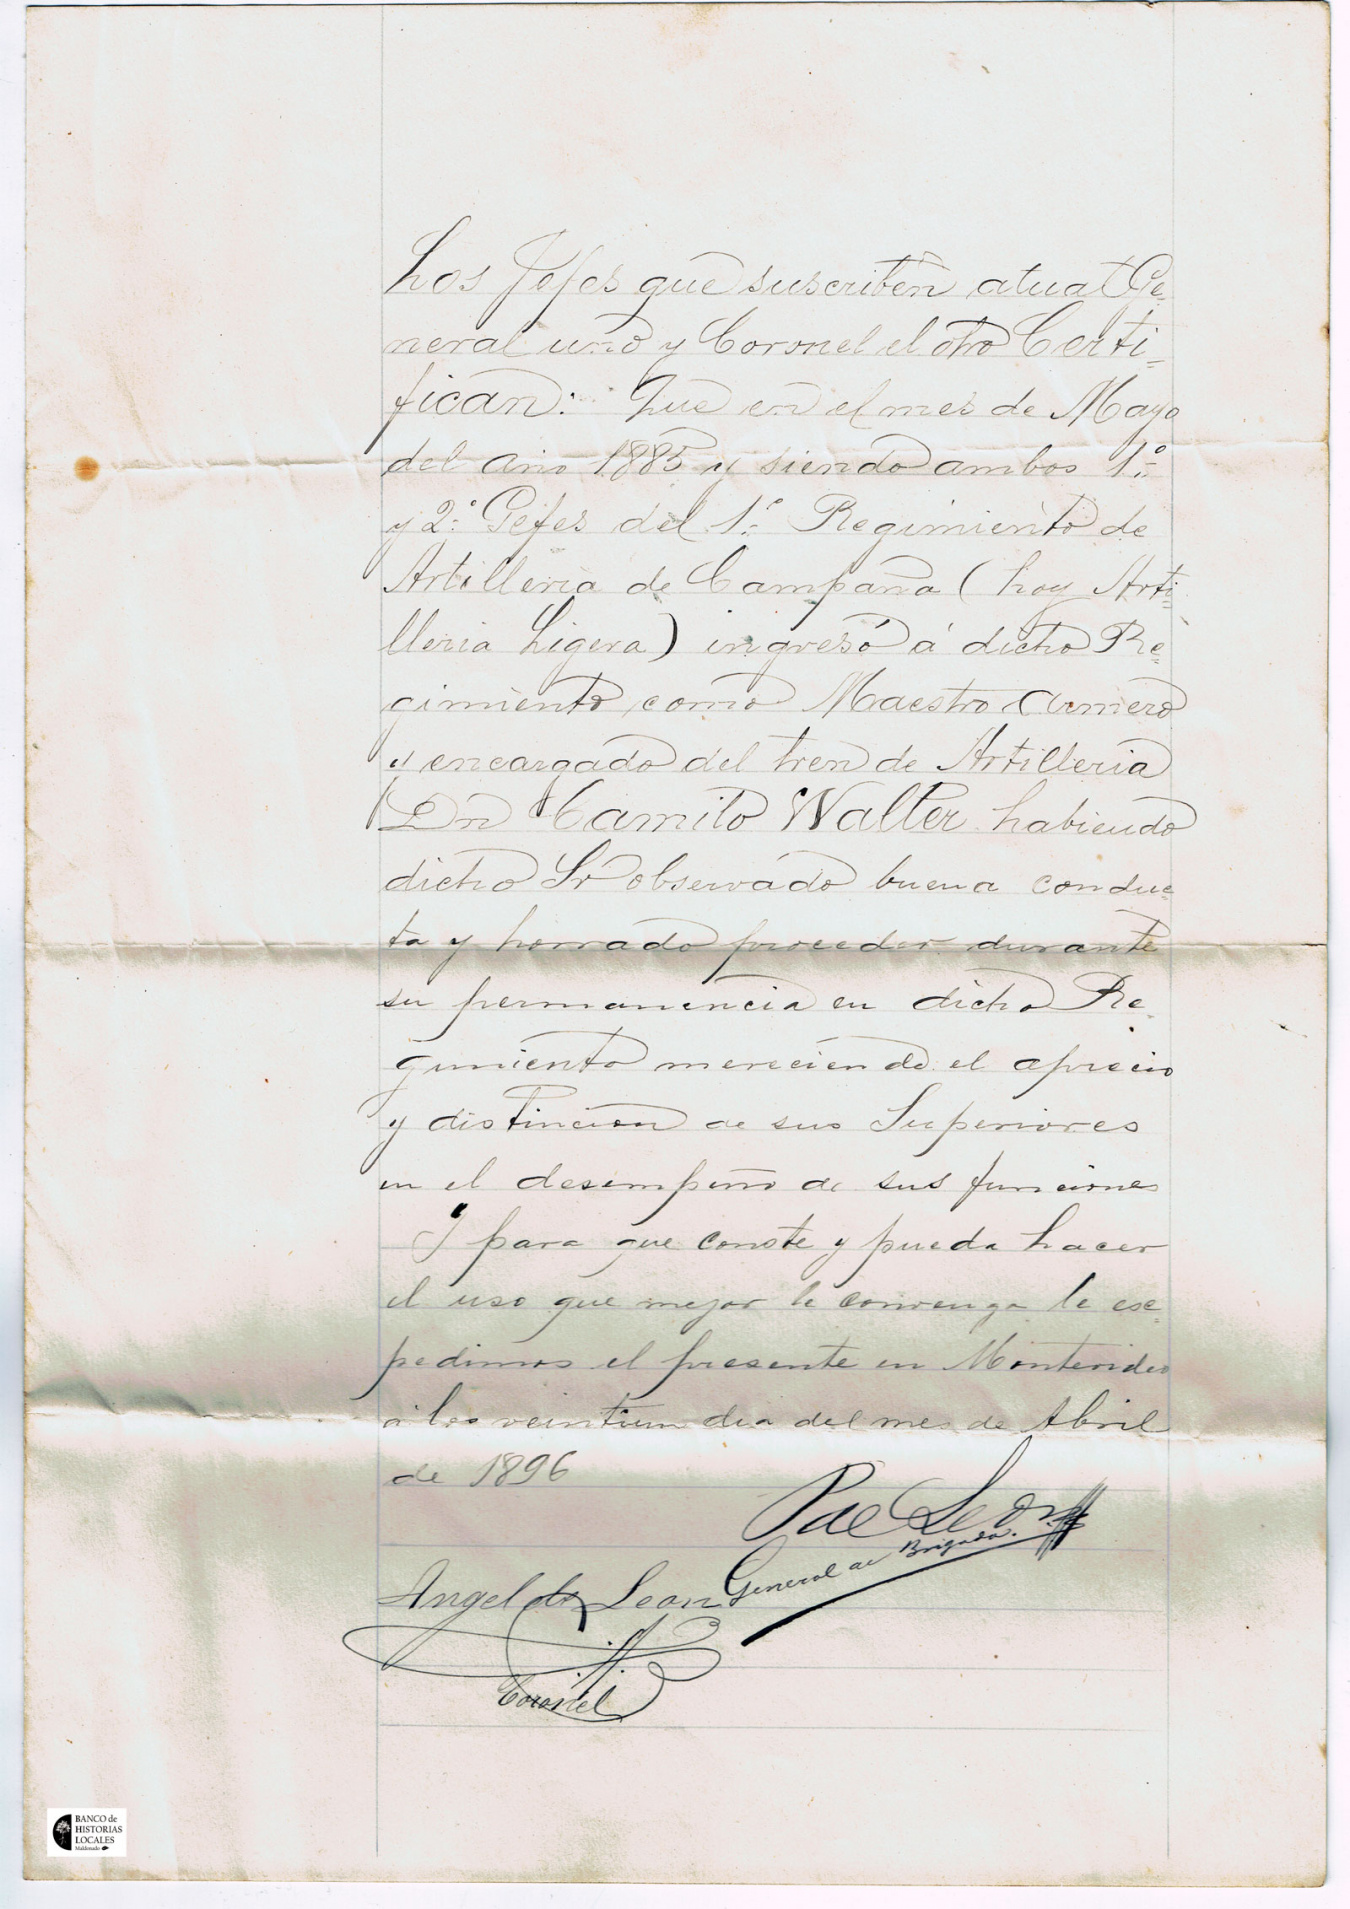 Los Jefes que suscribén atual Ge-
neral uno y Coronel el otro Certi-
fican: Que en el mes de Mayo
del año 1885 y siendo ambos 1º
y 2º Gefes del 1º Regimiento de
Artilleria de Campaña (hoy Arti-
lleria Ligera) ingresó á dicho Re-
gimiento como Maestro Armero
y encargado del tren de Artilleria
Dn Camilo Walter habiendo
dicho Sr observado buena conduc-
ta y honrado proceder durante
su permanencia en dicho Re
gimiento mereciendo el aprecio
y distincion de sus Superiores
en el desempeño de sus funciones
Y para que conste y pueda hacer
el uso que mejor le convenga le es-
pedimos el presente en Montevideo
á los veintiun dia del mes de Abril
de 1896
de Leon
General de Brigada.
Angel de Leon
Coronel
BANCO de
HISTORIAS
LOCALES
Maldonado